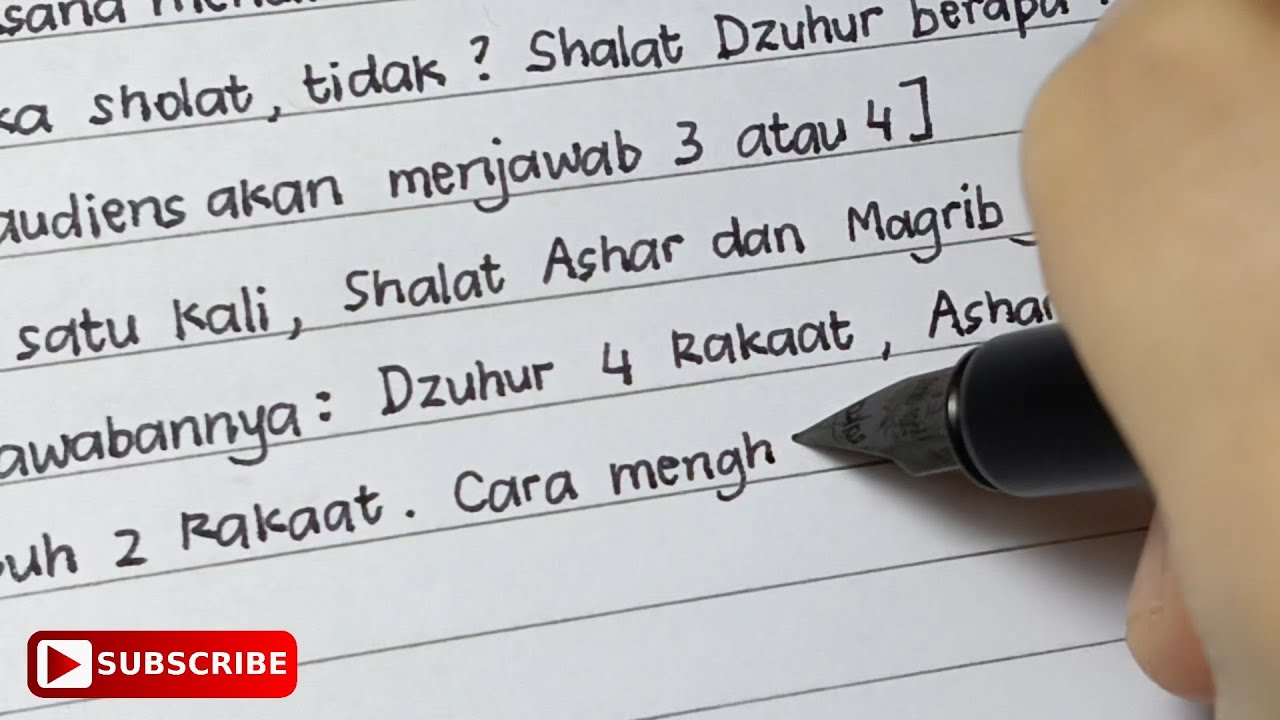 sholat, tidak ? Shalat Dzuhur berapa
audiens akan menjawab 3 atau 4]
satu kali, Shalat Ashar dan Magrib
awabannya : Dzuhur 4 Rakaat, Ashar
uh 2 Rakaat. Cara mengh
SUBSCRIBE